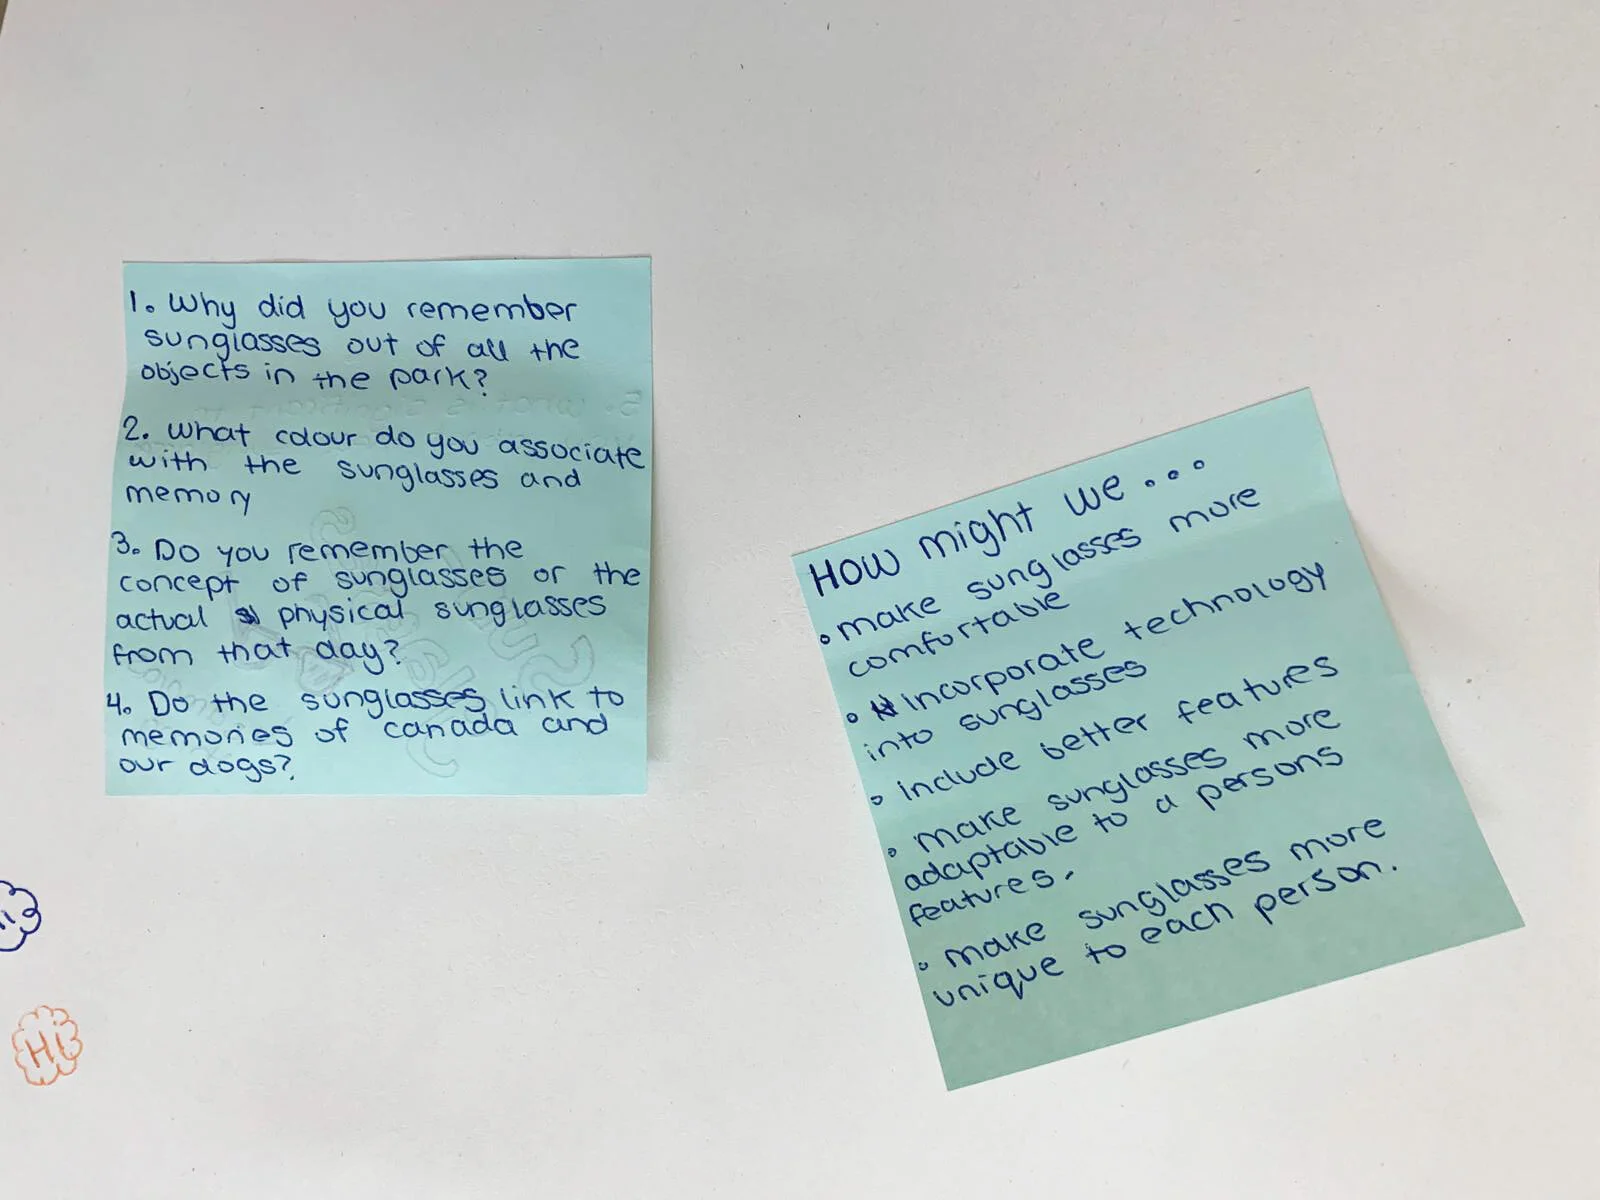 1. Why did you remember
sunglasses out of all the
objects in the park?
2. What colour do you associate
with the sunglasses and
memory
3. Do you remember the
concept of sunglasses or the
actual physical sunglasses
from that day?
4. Do the sunglasses link to
memories of canada and
our dogs?
How might we...
• make sunglasses more
comfortable
• incorporate technology
into sunglasses
• include better features
• make sunglasses more
adaptable to a persons
features.
• make sunglasses more
unique to each person.
Hi